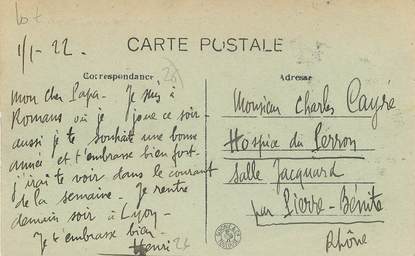 1/1-22-
CARTE POSTALE
Correspondance
Adresse
mon cher Papa - Je suis à
Romans où je joue ce soir-
aussi je te souhaite une bonne
année et t'embrasse bien fort-
j'irai te voir dans le courant
de la semaine - Je rentre
demain soir à Lyon-
Je t'embrasse bien-
Henri
Monsieur Charles Cayré
Hospice du Perron
Salle Jacquard
par Pierre-Bénite
Rhône